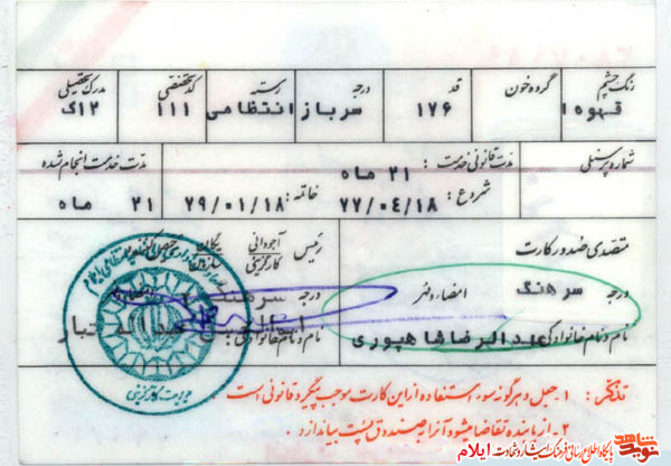 رنگ چشم
قهوه ا
گروه خون
قد
۱۷۶
درجه
سرباز
رسته
انتظامی
کد تخصصی
۱۱۱
مدرک تحصیلی
۱۲ک
شماره پرسنلی
مدت قانونی خدمت : ۲۱ ماه
شروع : ۷۷/۰۴/۱۸ خاتمه : ۷۹/۰۱/۱۸
مدت خدمت انجام شده
۲۱ ماه
متصدی صدور کارت
درجه سرهنگ امضاء و مهر
نام و نام خانوادگی عبدالرضا شاهپوری
رئیس آجودانی یگان
کارگزینی
درجه سرهنگ
نام و نام خانوادگی عبداله تبار
تذکر : ۱ـ جعل و هرگونه سوء استفاده از این کارت موجب پیگرد قانونی است .
۲ـ از یابنده تقاضا میشود آنرا به صندوق پست بیاندازد .
نوید شاهد
پایگاه اطلاع رسانی فرهنگ ایثار و شهادت ایلام